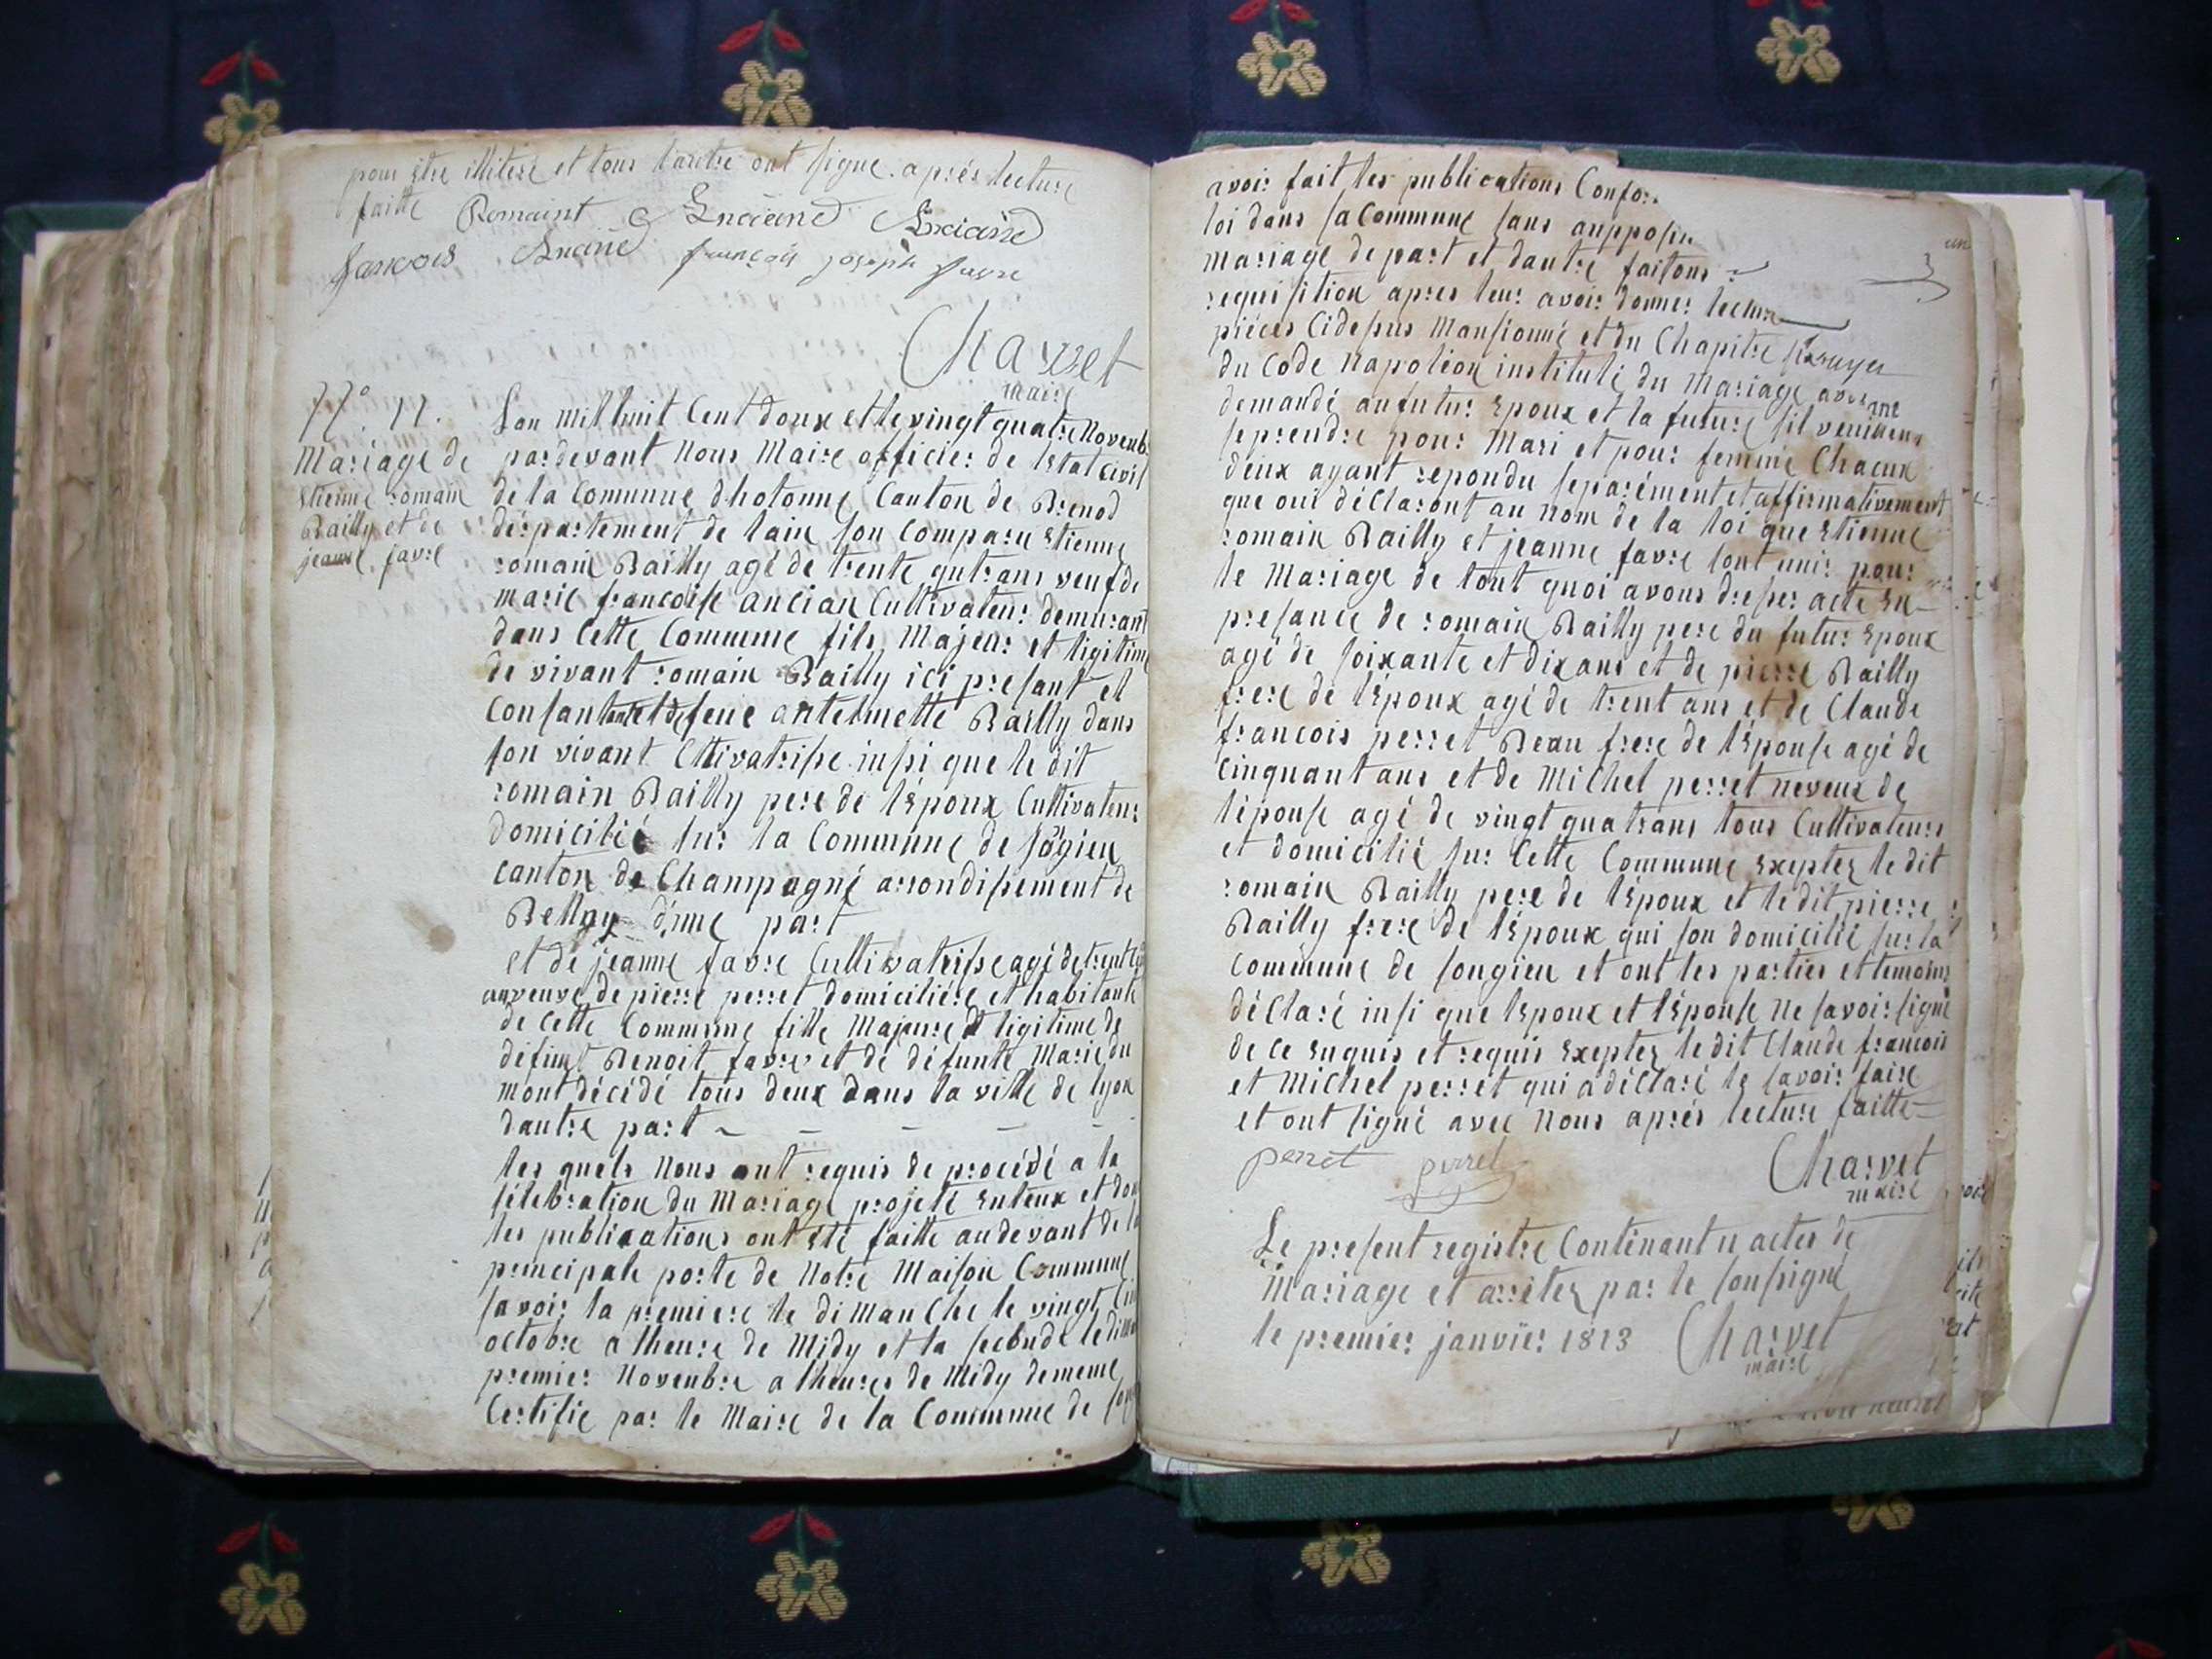 pour être illitere et tous lautre ont signe. aprés lecture
faitte Romaint Anciane Anciane
francois Anciné françois joseph favre
Charvet
maire
N.° 11.
Mariage de
Etienne romain
Bailly et de
jeanne favre
Lan mil huit Cent doux et le vingt quatre Novenb
pardevant nous Maire officier de letat Civil
de la Comunne dhotonne Canton de Brenod
dérpartement de lain son Comparu Etienne
romain Bailly agé de trente qutrans veuf de
marie francoise ancian Cultivateur demurant
dans Cette Commune fils Majeur et ligitime
de vivant romain Bailly ici presant et
Consantant et de feue antelmette Bailly dans
son vivant Cltivatrisse insi que le dit
romain Bailly pere de lépoux Cultivateur
domicilié sur la Commune de sogieu
canton de Champagné arrondissement de
Bellay d'une part
et de jeanne favre Cultivatrisse agé de trent
anveuve de pierre perret domiciliére et habitante
de Cette Commune fille Majeure et ligitime de
défunt Benoit favre et dé défunte Marie du
mont décédé tous deux dans la ville de lyon
dautre part ~ – – – –
les quels Nous ont requis de procédé a la
sélebration du Mariage projeté enteux et don
les publications ont été faitte audevant de la
principale porte de Notre Maison Commune
savoir la premiere le dimanche le vingt Cin
octobre a lheure de Midy et la seconde le dima
premier Novenbre a lheures de Midy dememe
Certifie par le Maire de la Commune de
avoir fait les publications Confor
loi dans sa Commune sans aupposin
mariage de part et dautre faitons
requisition apres leur avoir donner lecture
piéces Cidesus Mansionné et du Chapitre
du Code Napoléon institulé du Mariage avoir
demandé aufutur Epoux et la future sil
se prendre pour Mari et pour femme Chacun
deux ayant repondu separément et affirmativement
que oui déClaront au Nom de la loi que Etienne
romain Bailly et jeanne favre sont unir pour
le Mariage de tout quoi avons dresser acte En
presance de romain Bailly pere du futur Epoux
agé de soixante et dix ans et de pierre Bailly
frere de lépoux agé de trent ans et de Claude
francois perret Beau frere de lépouse agé de
Cinquant ans et de Michel perret neveux de
lépouse agé de vingt quatrans tous Cultivateurs
et domicilié sur Cette Commune Exeptez le dit
romain Bailly pere de lépoux et le dit pierre
Bailly frere de lépoux qui son domicilié sur la
Commune de songieu et ont les parties et temoins
déClaré insi que lepoux et lépouse Ne savoir signé
de Ce Enquis et requis Exeptez le dit Claude francois
et Michel perret qui a déClaré le savoir faire
et ont signé avec Nous aprés lecture faitte
perret perret
Charvet
maire
Le present registre Contenant 11 actes de
Mariage et arrétez par le sousigné
le premier janvier 1813 Charvet
maire